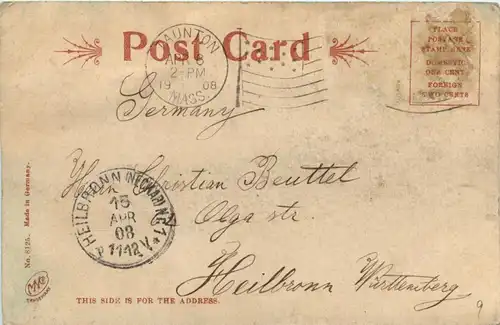 Post Card
TAUNTON
APR 6
2-PM
1908
MASS.
PLACE
POSTAGE
STAMP HERE
DOMESTIC
ONE CENT
FOREIGN
TWO CENTS
Germany
Herrn Christian Beuttel
Olga str.
Heilbronn Württemberg
HEILBRONN (NECKAR) No 1
15
APR
08
11-12 V.
No. 6125. Made in Germany.
THIS SIDE IS FOR THE ADDRESS.
9